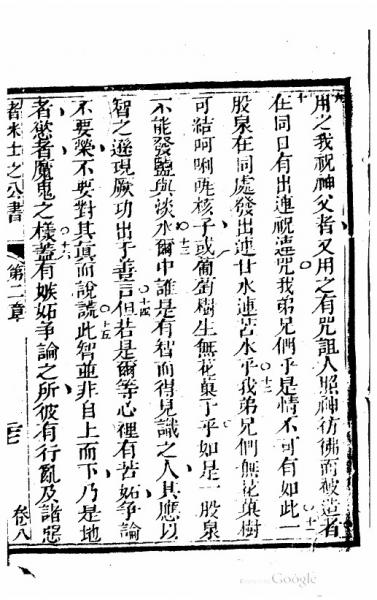 用之我祝神父者又用之有咒詛人照神彷彿而被造者
十 在同口有出連祝連咒我弟兄們乎是情不可有如此 十一 一
股泉在同處發出連甘水連苦水乎我弟兄們 十二 無花菓樹
可結呵唎𠵽核子或葡萄樹生無花菓子乎如是一股泉
不能發鹽與淡水 十三 爾中誰是有智而得見識之人其應以
智之遜現厥功出于善言 十四 但若是爾等心裡有苦妬爭論
不要榮不要對其真而說謊 十五 此智並非自上而下乃是地
者慾者魔鬼之樣 十六 蓋有嫉妬爭論之所彼有行亂及諸惡
者米士之公書 第二章 三 卷八
Google